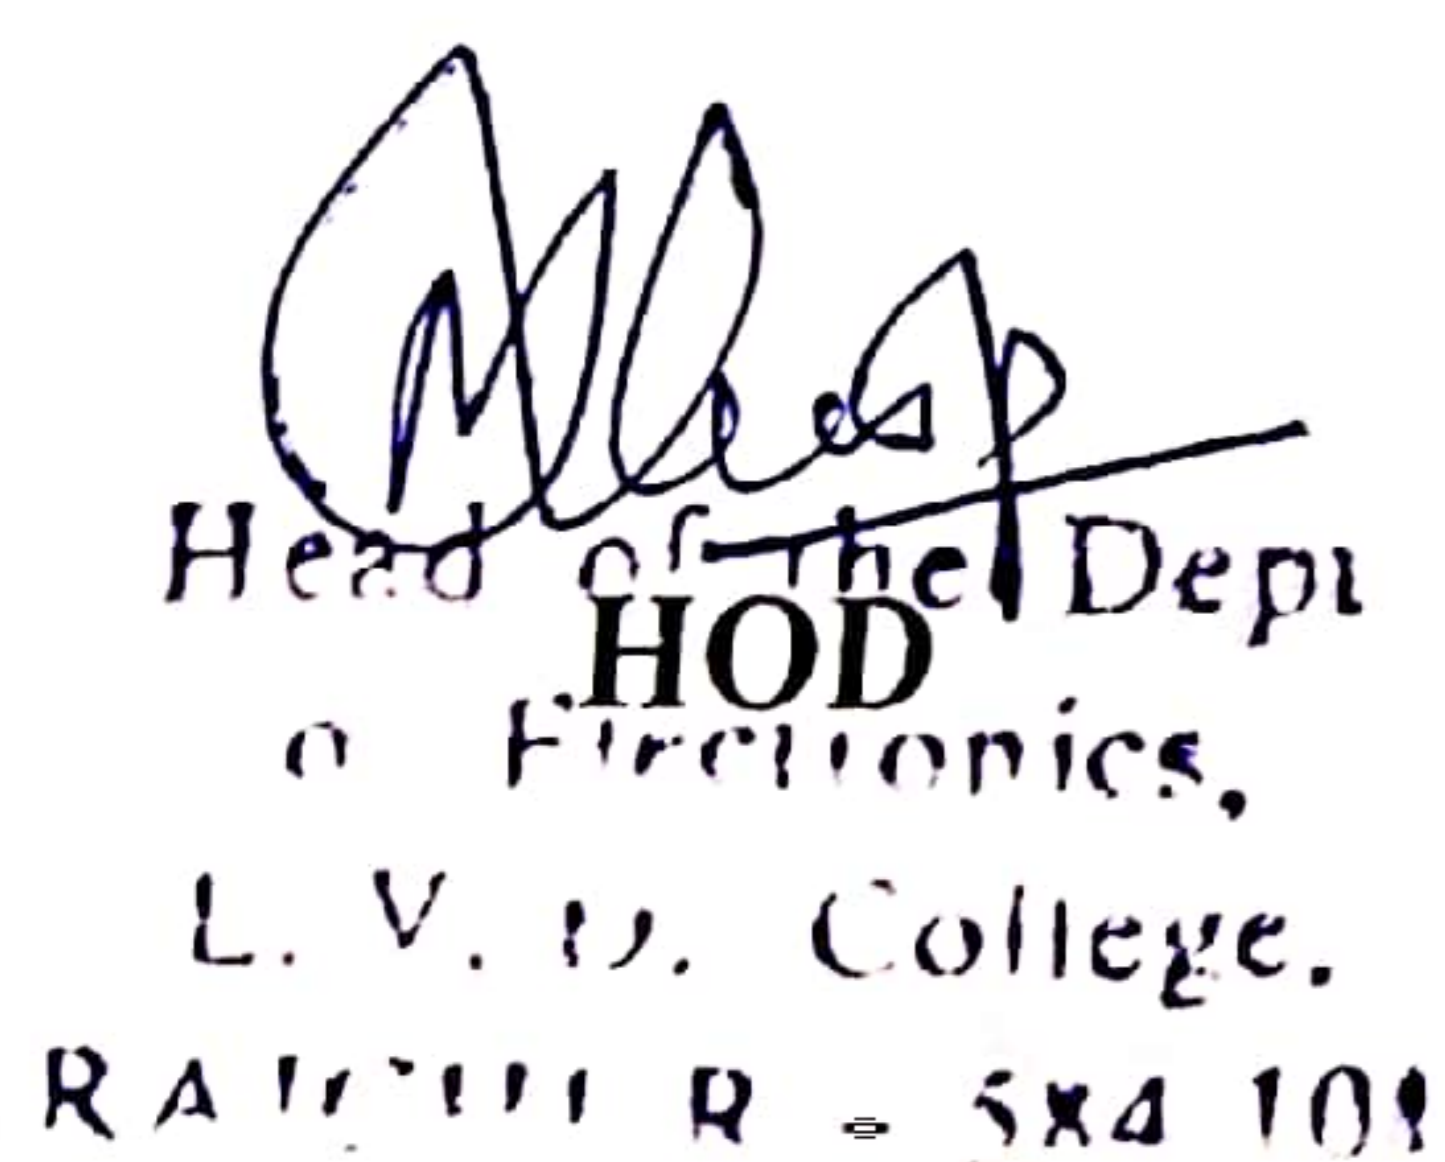 Head of The Dept
HOD
of Electronics,
L. V. D. College.
RAICHUR - 584 101